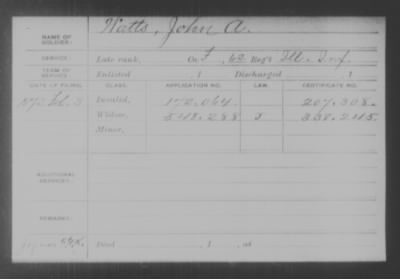 NAME OF SOLDIER: Watts, John A.
SERVICE: Late rank, Co. F, 62 Reg't Ill. Inf.
TERM OF SERVICE: Enlisted , 1 Discharged , 1
DATE OF FILING. CLASS. APPLICATION NO. LAW. CERTIFICATE NO.
1872 Feb. 3 Invalid, 172.064 207.308.
Widow, 548.288 350.245
Minor,
ADDITIONAL SERVICES:
REMARKS:
Died , 1 , at